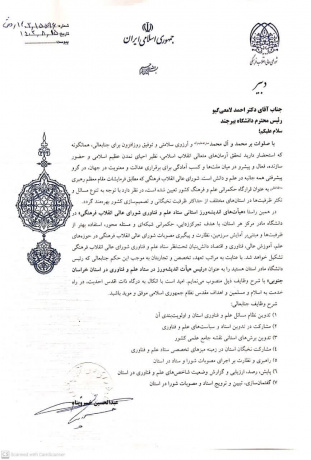 جمهوری اسلامی ایران
دبیر
جناب آقای دکتر احمد لامعی‌گیو
رئیس محترم دانشگاه بیرجند
سلام علیکم؛
با صلوات بر محمد و آل محمد و آرزوی سلامتی و توفیق روزافزون برای جنابعالی، همانگونه
که استحضار دارید تحقق آرمان‌های متعالی انقلاب اسلامی، نظیر احیای تمدن عظیم اسلامی و حضور
سازنده، فعال و پیشرو در میان ملت‌ها و کسب آمادگی برای برقراری عدالت و معنویت در جهان، در گرو
پیشرفتی همه جانبه در علم و دانش است. شورای عالی انقلاب فرهنگی که مطابق فرمایشات مقام معظم رهبری
به عنوان قرارگاه حکمرانی علم و فرهنگ کشور تعیین شده است، در نظر دارد با توجه به تنوع مسائل و
تکثر ظرفیت‌ها در استان‌های مختلف از حداکثر ظرفیت نخبگانی و تصمیم‌سازی کشور بهره‌مند گردد.
در همین راستا «هیأت‌های اندیشه‌ورز استانی ستاد علم و فناوری شورای عالی انقلاب فرهنگی» در
دانشگاه مادر مرکز هر استان، با هدف تمرکززدایی، حکمرانی شبکه‌ای و مسئله محور، استفاده بهتر از
ظرفیت‌ها و مبتنی‌بر آمایش سرزمین، نظارت و پیگیری مصوبات شورای عالی انقلاب فرهنگی در حوزه‌های
علم، آموزش عالی، فناوری و اقتصاد دانش‌بنیان تحت‌نظر ستاد علم و فناوری شورای عالی انقلاب فرهنگی
تشکیل خواهد شد. با عنایت به مراتب تعهد، تخصص و تجارب‌تان به موجب این حکم جنابعالی که رئیس
دانشگاه مادر استان هستید را به عنوان «رئیس هیأت اندیشه‌ورز ستاد علم و فناوری در استان خراسان
جنوبی» با شرح وظایف ذیل منصوب می‌نمایم. امید است با اتکال به درگاه ذات اقدس احدیت، در راه
خدمت به اسلام و مسلمین و اهداف مقدس نظام جمهوری اسلامی موفق و موید باشید.
شرح وظایف جنابعالی:
۱) تدوین نظام مسائل علم و فناوری استان و اولویت‌بندی آن
۲) مشارکت در تدوین اسناد و سیاست‌های علم و فناوری
۳) تدوین برش‌های استانی نقشه جامع علمی کشور
۴) مشارکت نخبگان استان در زمینه میزهای تخصصی ستاد علم و فناوری
۵) راهبری و نظارت بر اجرای مصوبات شورا در استان
۶) پایش، رصد، ارزیابی و گزارش وضعیت شاخص‌های علم و فناوری در استان
۷) گفتمان‌سازی، تبیین و ترویج اسناد و مصوبات شورا در استان
عبدالحسین خسروپناه
Scanned with CamScanner